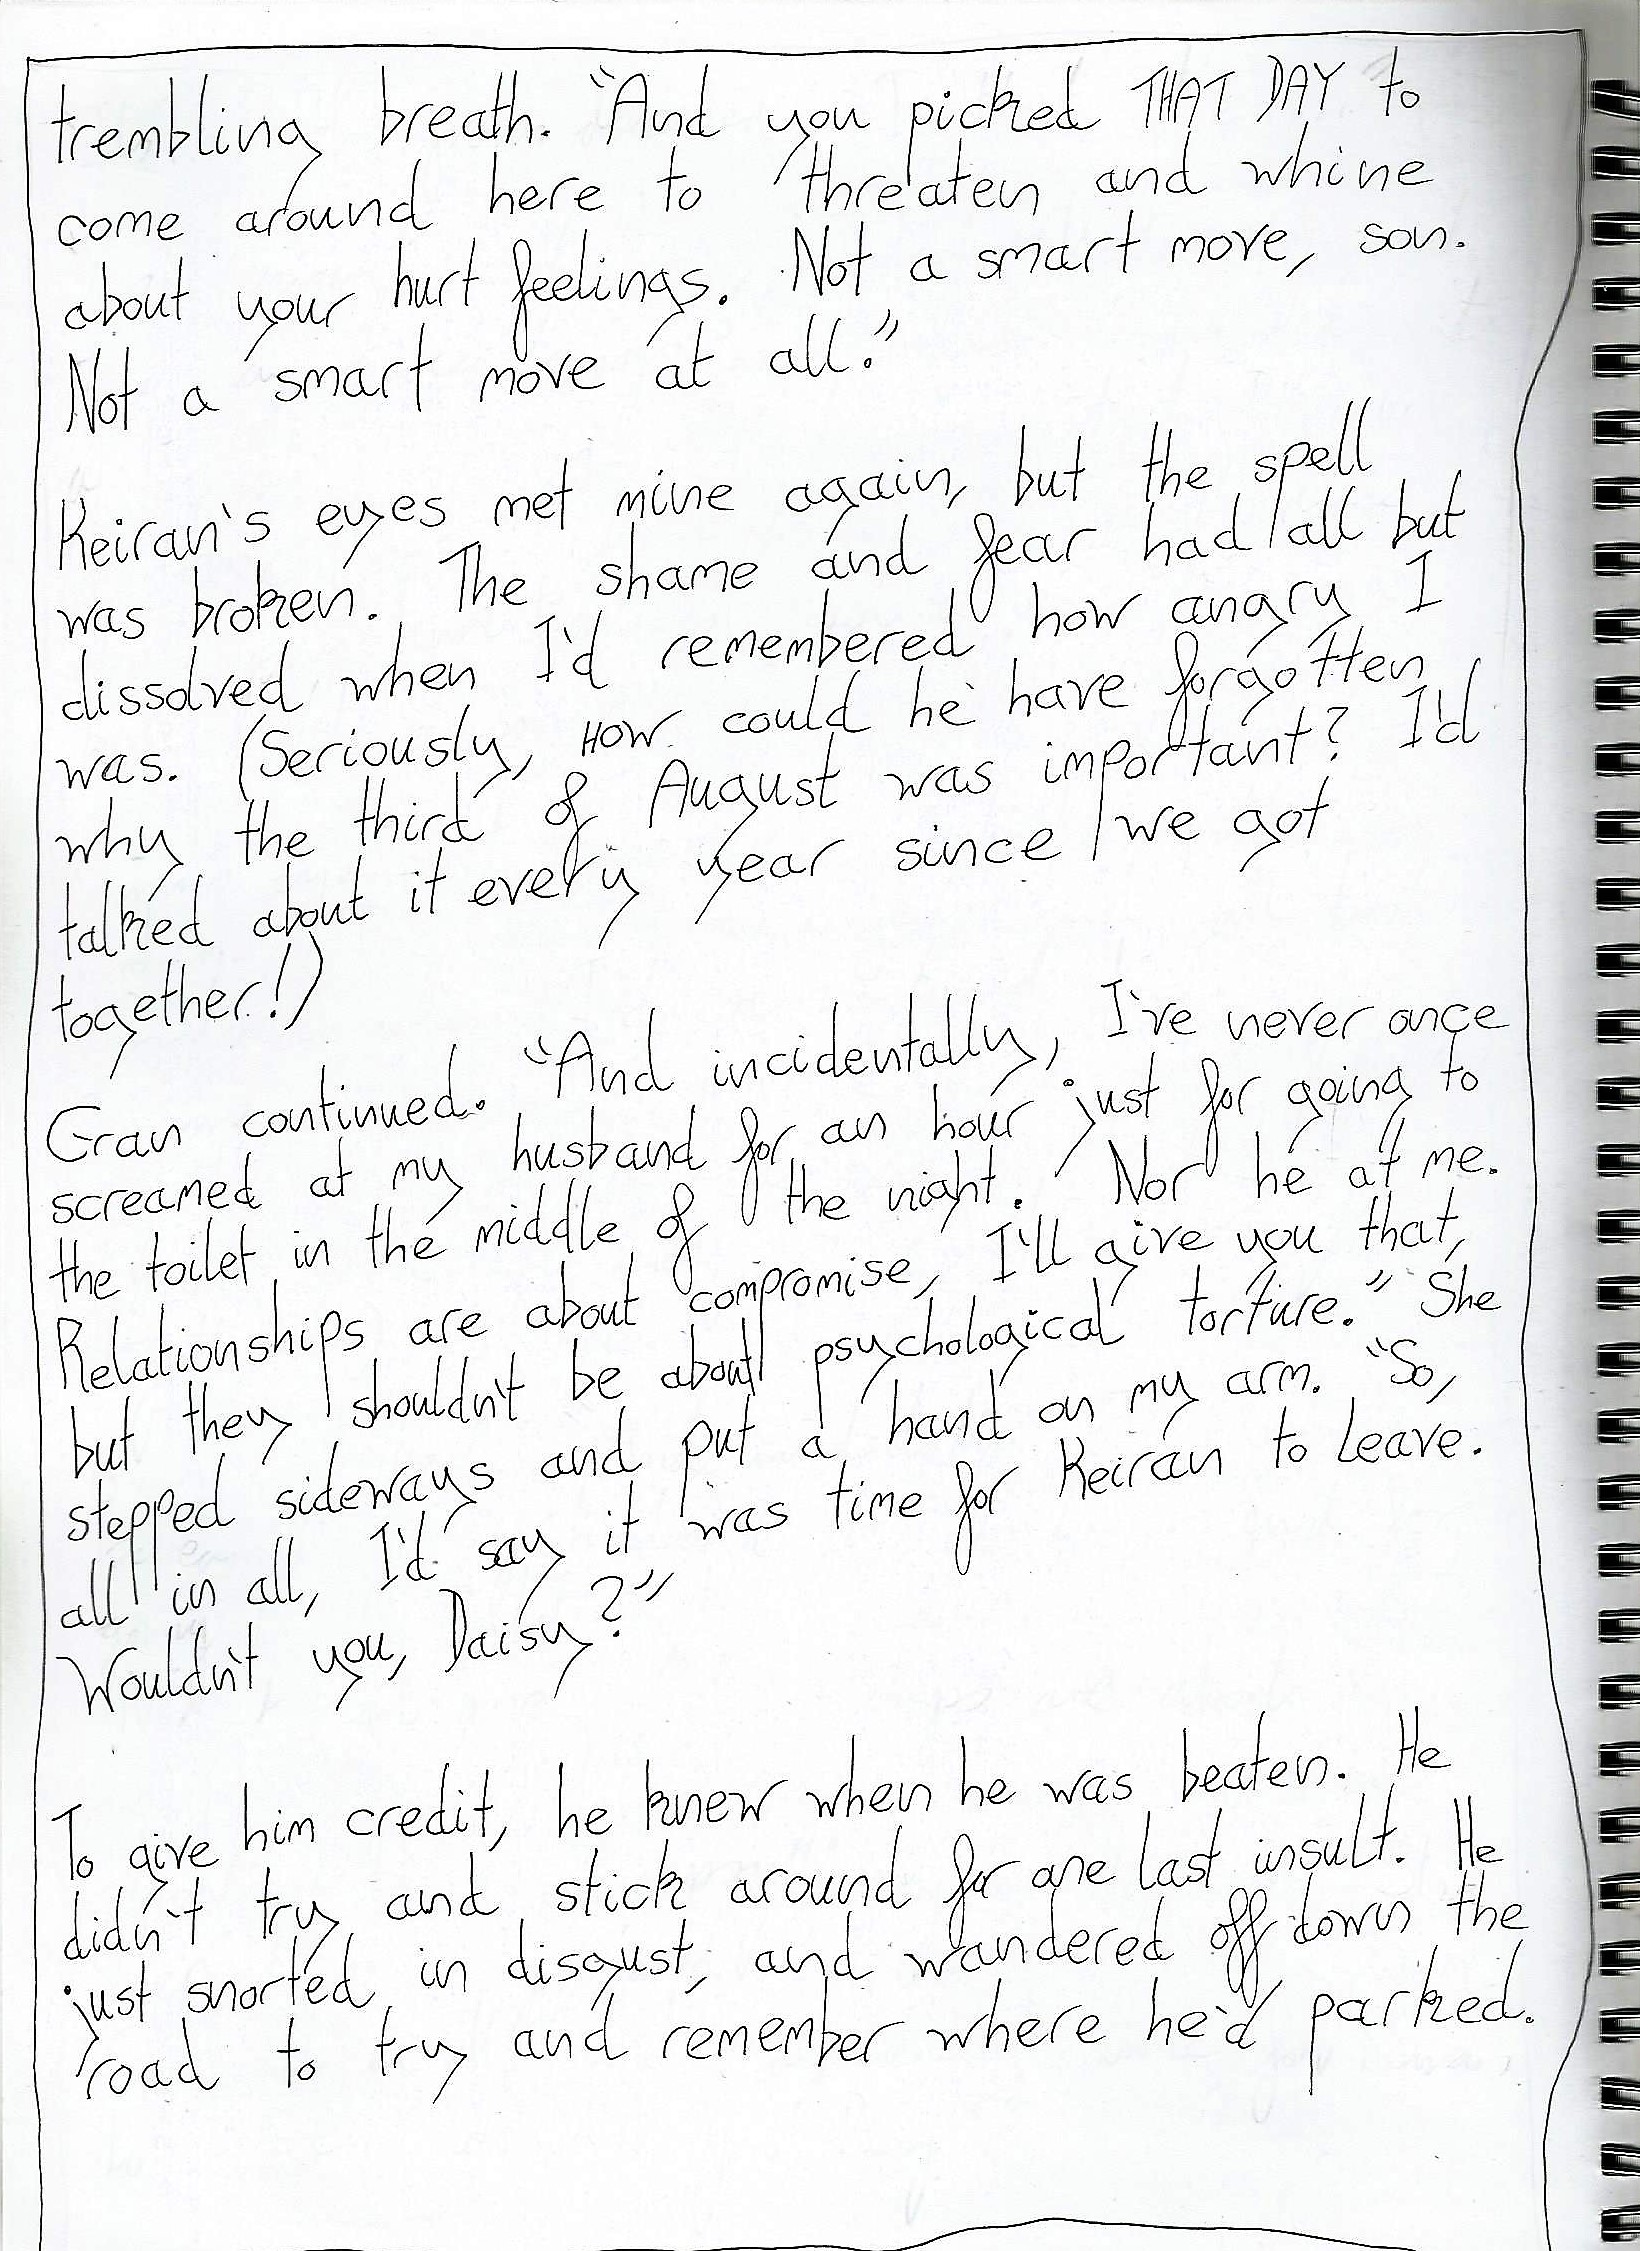 trembling breath. "And you picked THAT DAY to
come around here to threaten and whine
about your hurt feelings. Not a smart move, son.
Not a smart move at all."
Keiran's eyes met mine again, but the spell
was broken. The shame and fear had all but
dissolved when I'd remembered how angry I
was. (Seriously, HOW could he have forgotten
why the third of August was important? I'd
talked about it every year since we got
together!)
Gran continued. "And incidentally, I've never once
screamed at my husband for an hour just for going to
the toilet in the middle of the night. Nor he at me.
Relationships are about compromise, I'll give you that,
but they shouldn't be about psychological torture." She
stepped sideways and put a hand on my arm. "So,
all in all, I'd say it was time for Keiran to leave.
Wouldn't you, Daisy?"
To give him credit, he knew when he was beaten. He
didn't try and stick around for one last insult. He
just snorted in disgust, and wandered off down the
road to try and remember where he'd parked.